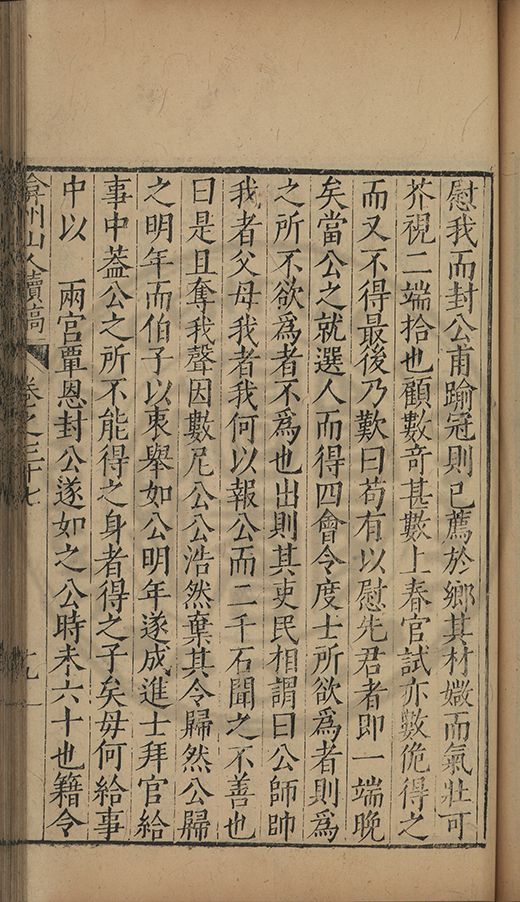 慰我而封公甫踰冠則已薦於鄉其材嫩而氣壯可
芥視二端拾也顧數奇甚數上春官試亦數俛得之
而又不得最後乃歎曰苟有以慰先君者即一端晚
矣當公之就選人而得四會令度士所欲爲者則爲
之所不欲爲者不爲也出則其吏民相謂曰公師帥
我者父母我者我何以報公而二千石聞之不善也
曰是且奪我聲因數尼公公浩然棄其令歸然公歸
之明年而伯子以衷舉如公明年遂成進士拜官給
事中葢公之所不能得之身者得之子矣毋何給事
中以　兩官覃恩封公遂如之公時未六十也籍令
弇州山人續稿　卷之三十七　十九